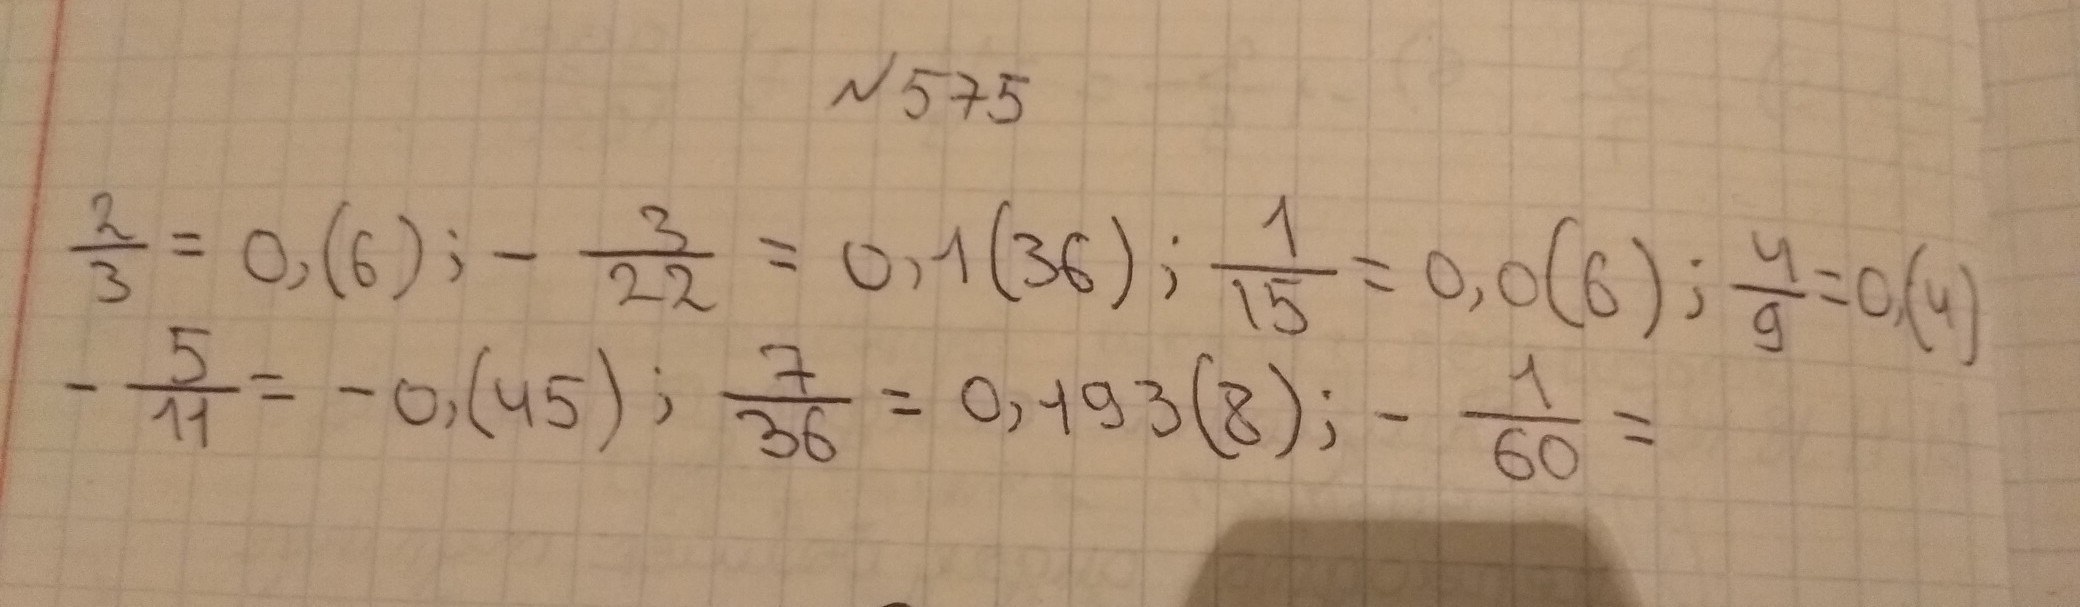 №575
2/3 = 0,(6); - 3/22 = 0,1(36); 1/15 = 0,0(6); 4/9 = 0,(4)
- 5/11 = -0,(45); 7/36 = 0,193(8); - 1/60 =